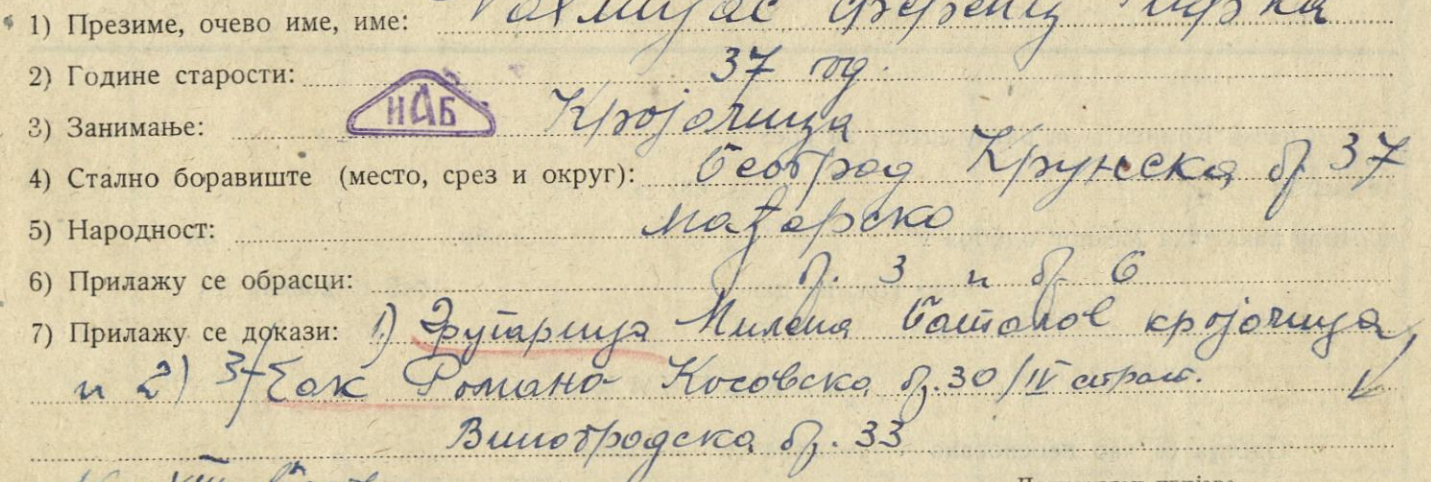 1) Презиме, очево име, име: Ференц
2) Године старости: 37 год.
НАБ
3) Занимање: Кројачица
4) Стално боравиште (место, срез и округ): Београд Крунска бр 37
5) Народност: мађарска
6) Прилажу се обрасци: бр. 3 и бр 6
7) Прилажу се докази: 1) Милена кројачица,
и 2) Романо Косовска бр. 30/IV
бр. 33